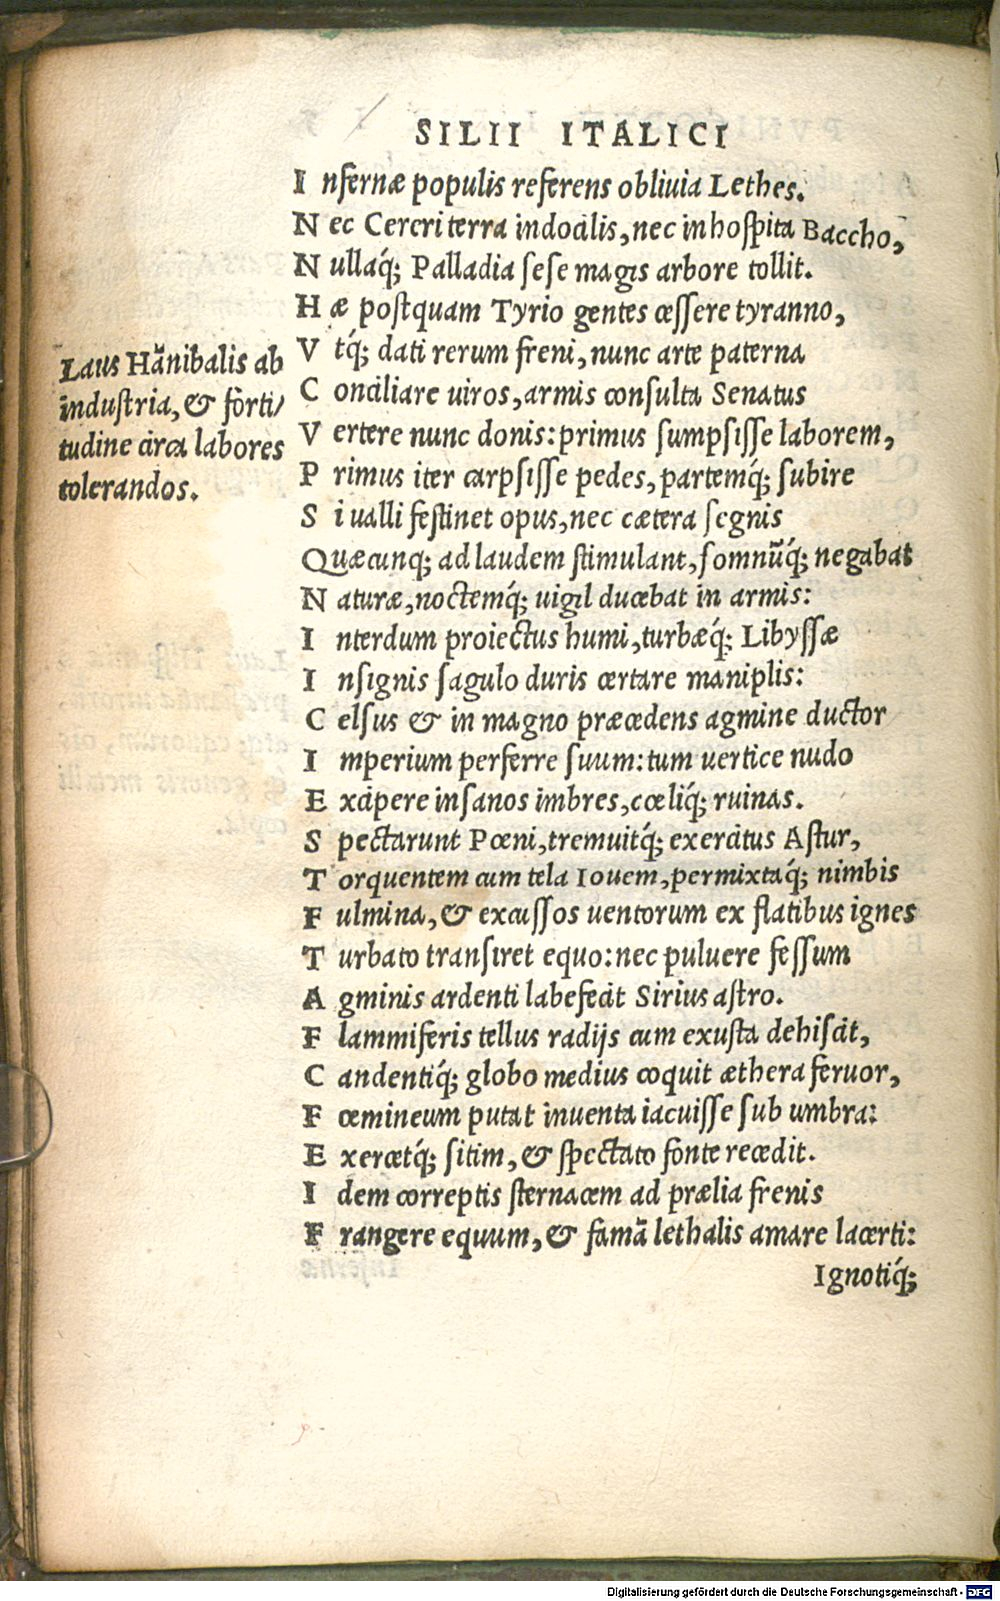 SILII ITALICI
I nfernæ populis referens obliuia Lethes.
N ec Cercri terra indocilis, nec inhospita Baccho,
N ullaq́; Palladia sese magis arbore tollit.
H æ postquam Tyrio gentes cessere tyranno,
V tq́; dati rerum freni, nunc arte paterna
C onciliare uiros, armis consulta Senatus
V ertere nunc donis: primus sumpsisse laborem,
P rimus iter carpsisse pedes, partemq́; subire
S i ualli festinet opus, nec cætera segnis
Quæcunq; ad laudem stimulant, somnũq́; negabat
N aturæ, noctemq́; uigil ducebat in armis:
I nterdum proiectus humi, turbæq́; Libyssæ
I nsignis sagulo duris certare maniplis:
C elsus & in magno præcedens agmine ductor
I mperium perferre suum: tum uertice nudo
E xcipere insanos imbres, cœliq́; ruinas.
S pectarunt Pœni, tremuitq́; exercitus Astur,
T orquentem cum tela Iouem, permixtaq́; nimbis
F ulmina, & excussos uentorum ex flatibus ignes
T urbato transiret equo: nec puluere fessum
A gminis ardenti labefecit Sirius astro.
F lammiferis tellus radijs cum exusta dehiscit,
C andentiq́; globo medius coquit æthera feruor,
F œmineum putat inuenta iacuisse sub umbra:
E xercetq́; sitim, & spectato fonte recedit.
I dem correptis sternacem ad prælia frenis
F rangere equum, & famã lethalis amare lacerti:
Ignotiq́;
Laus Hãnibalis ab
industria, & forti/
tudine circa labores
tolerandos.
Digitalisierung gefördert durch die Deutsche Forschungsgemeinschaft - DFG